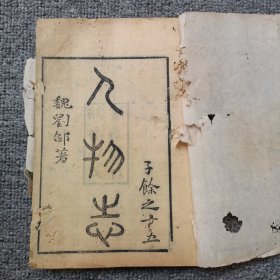 子餘之廿五
人物志
魏劉邵著